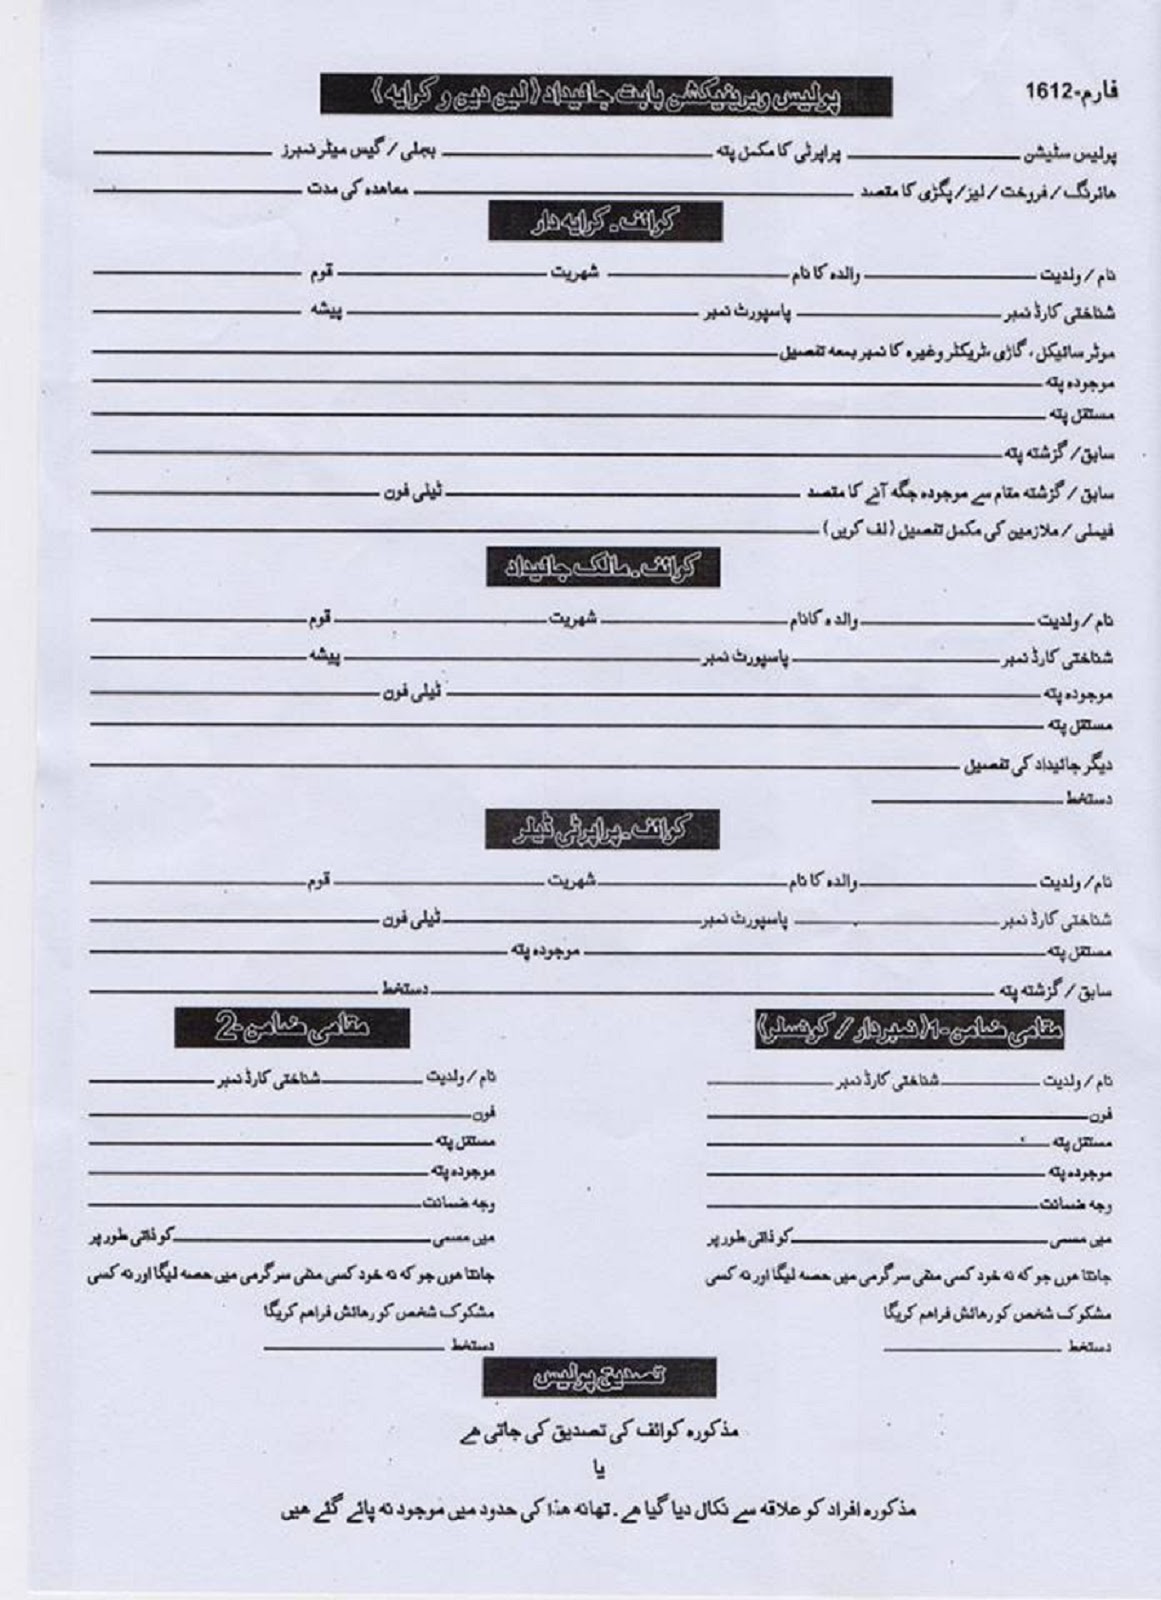 فارم-1612
پولیس ویریفیکشن بابت جائیداد (لین دین و کرایہ)
پولیس سٹیشن ____ پراپرٹی کا مکمل پتہ ____ بجلی / گیس میٹر نمبرز ____
ھائرنگ / فروخت / لیز / پگڑی کا مقصد ____ معاھدہ کی مدت ____
کوائف ۔ کرایہ دار
نام / ولدیت ____ والدہ کا نام ____ شھریت ____ قوم ____
شناختی کارڈ نمبر ____ پاسپورٹ نمبر ____ پیشہ ____
موٹر سائیکل ، گاڑی ،ٹریکٹر وغیرہ کا نمبر بمعہ تفصیل ____
موجودہ پتہ ____
مستقل پتہ ____
سابق / گزشتہ پتہ ____
سابق / گزشتہ مقام سے موجودہ جگہ آنے کا مقصد ____ ٹیلی فون ____
فیملی / ملازمین کی مکمل تفصیل (لف کریں) ____
کوائف ۔ مالک جائیداد
نام / ولدیت ____ والدہ کانام ____ شھریت ____ قوم ____
شناختی کارڈ نمبر ____ پاسپورٹ نمبر ____ پیشہ ____
موجودہ پتہ ____ ٹیلی فون ____
مستقل پتہ ____
دیگر جائیداد کی تفصیل ____
دستخط ____
کوائف ۔ پراپرٹی ڈیلر
نام / ولدیت ____ والدہ کا نام ____ شھریت ____ قوم ____
شناختی کارڈ نمبر ____ پاسپورٹ نمبر ____ ٹیلی فون ____
مستقل پتہ ____ موجودہ پتہ ____
سابق / گزشتہ پتہ ____ دستخط ____
مقامی ضامن-1 (نمبردار / کونسلر)
نام / ولدیت ____ شناختی کارڈ نمبر ____
فون ____
مستقل پتہ ____
موجودہ پتہ ____
وجہ ضمانت ____
میں مسمی ____ کو ذاتی طور پر
جانتا ھوں جو کہ نہ خود کسی منفی سرگرمی میں حصہ لیگا اور نہ کسی
مشکوک شخص کو رھائش فراھم کریگا
دستخط ____
مقامی ضامن-2
نام / ولدیت ____ شناختی کارڈ نمبر ____
فون ____
مستقل پتہ ____
موجودہ پتہ ____
وجہ ضمانت ____
میں مسمی ____ کو ذاتی طور پر
جانتا ھوں جو کہ نہ خود کسی منفی سرگرمی میں حصہ لیگا اور نہ کسی
مشکوک شخص کو رھائش فراھم کریگا
دستخط ____
تصدیق پولیس
مذکورہ کوائف کی تصدیق کی جاتی ھے
یا
مذکورہ افراد کو علاقہ سے نکال دیا گیا ھے ۔ تھانہ ھذا کی حدود میں موجود نہ پائے گئے ھیں